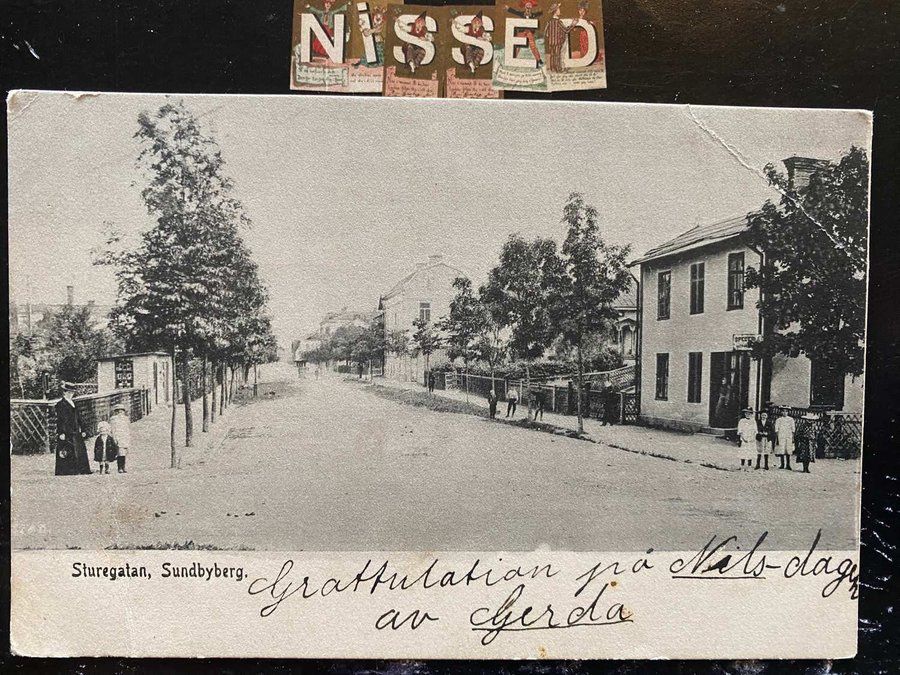 NiSSED
Sturegatan, Sundbyberg.
Grattulation på Nils-dagen
av Gerda